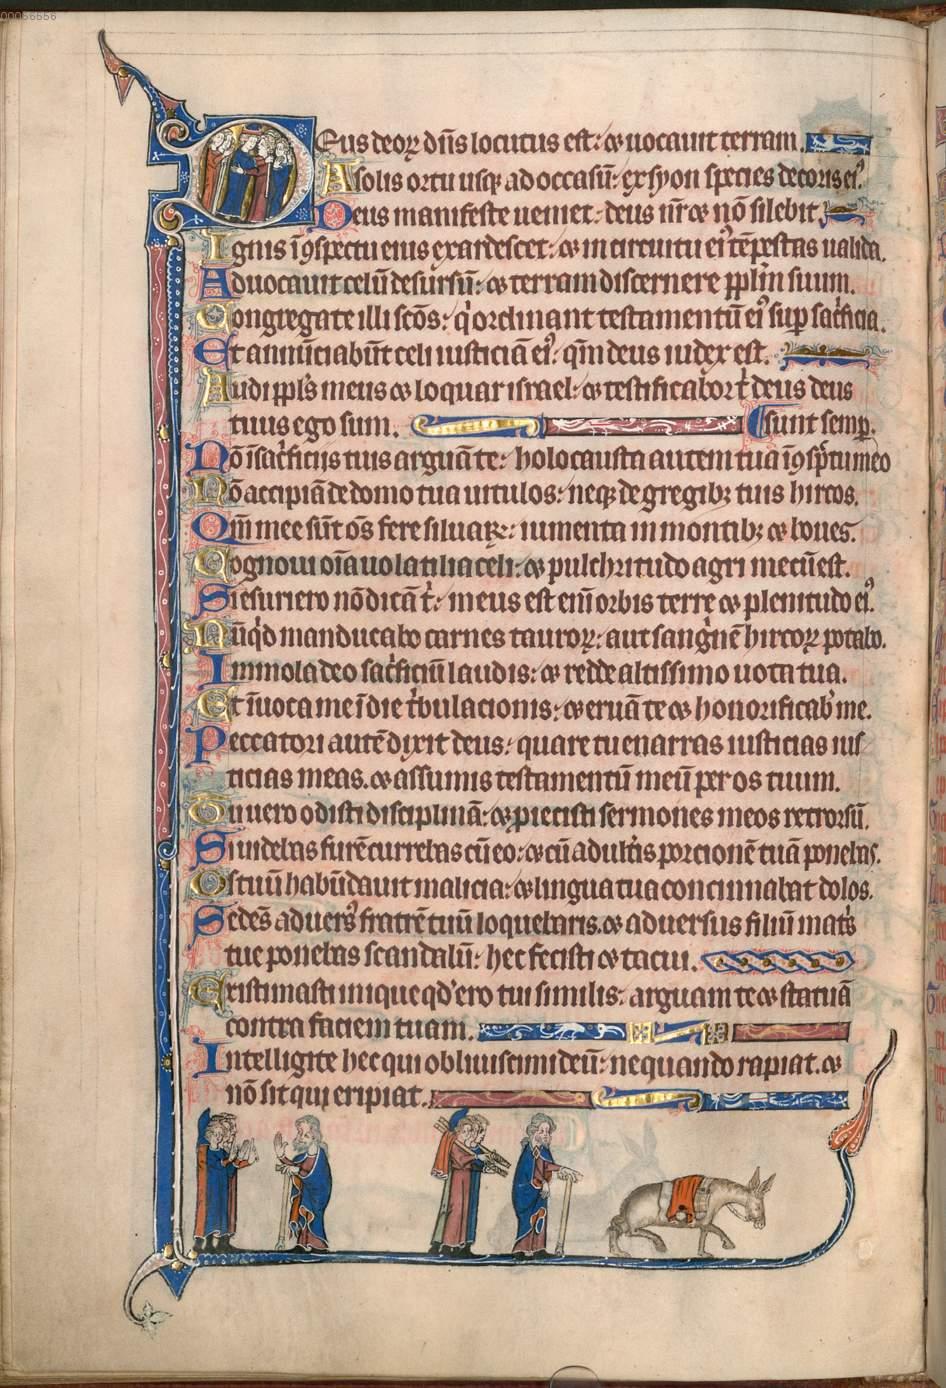 00056556
Deus deoꝝ dn̄s locutus est: ⁊ uocauit terram.
A solis ortu usq; ad occasū: ex syon species decoris eiꝰ.
Deus manifeste ueniet: deus nr̄ ⁊ nō silebit.
Ignis ī ꝯspectu eius exardescet: ⁊ in circuitu eiꝰ tēpestas ualida.
Aduocauit celū desursū: ⁊ terram discernere pplm̄ suum.
Congregate illi scōs: q̇ ordinant testamentū eiꝰ sup sac̉ficia.
Et annūciabūt celi iusticiā eiꝰ: qm̄ deus iudex est.
Audi ppls̄ meus ⁊ loquar israel: ⁊ testificabor t̉ deus deus
tuus ego sum. sunt semp̲.
Nō ī sac̉ficiis tuis arguā te: holocausta autem tua ī ꝯsp̄tu meo
Nō accipiā de domo tua uitulos: neq; de gregibꝫ tuis hircos.
Qm̄ mee sūt oēs fere siluaꝝ: iumenta in montibꝫ ⁊ boues.
Cognoui oīa uolatilia celi: ⁊ pulchritudo agri mecū est.
Si esuriero nō dicā t̉: meus est enī orbis terre ⁊ plenitudo eiꝰ.
Nūq̇d manducabo carnes tauroꝝ: aut sanguinē hircoꝝ potabo.
Immola deo sac̉ficiū laudis: ⁊ redde altissimo uota tua.
Et īuoca me ī die t̉bulacionis: ⁊ eruā te ⁊ honorificab̉ me.
Peccatori autē dixit deus: quare tu enarras iusticias ius
ticias meas. ⁊ assumis testamentū meū per os tuum.
Tu uero odisti disciplinā: ⁊ ꝓiecisti sermones meos retrorsū.
Si uidebas furē currebas cū eo: ⁊ cū adult̉is porcionē tuā ponebas.
Os tuū habūdauit malicia: ⁊ lingua tua concinnabat dolos.
Sedēs aduersꝰ fratrē tuū loquebaris. ⁊ aduersus filiū mat̉s
tue ponebas scandalū: hec fecisti ⁊ tacui.
Existimasti inique qd̉ ero tui similis: arguam te ⁊ statuā
contra faciem tuam.
Intelligite hec qui obliuiscimi deū: nequando rapiat. ⁊
nō sit qui eripiat.